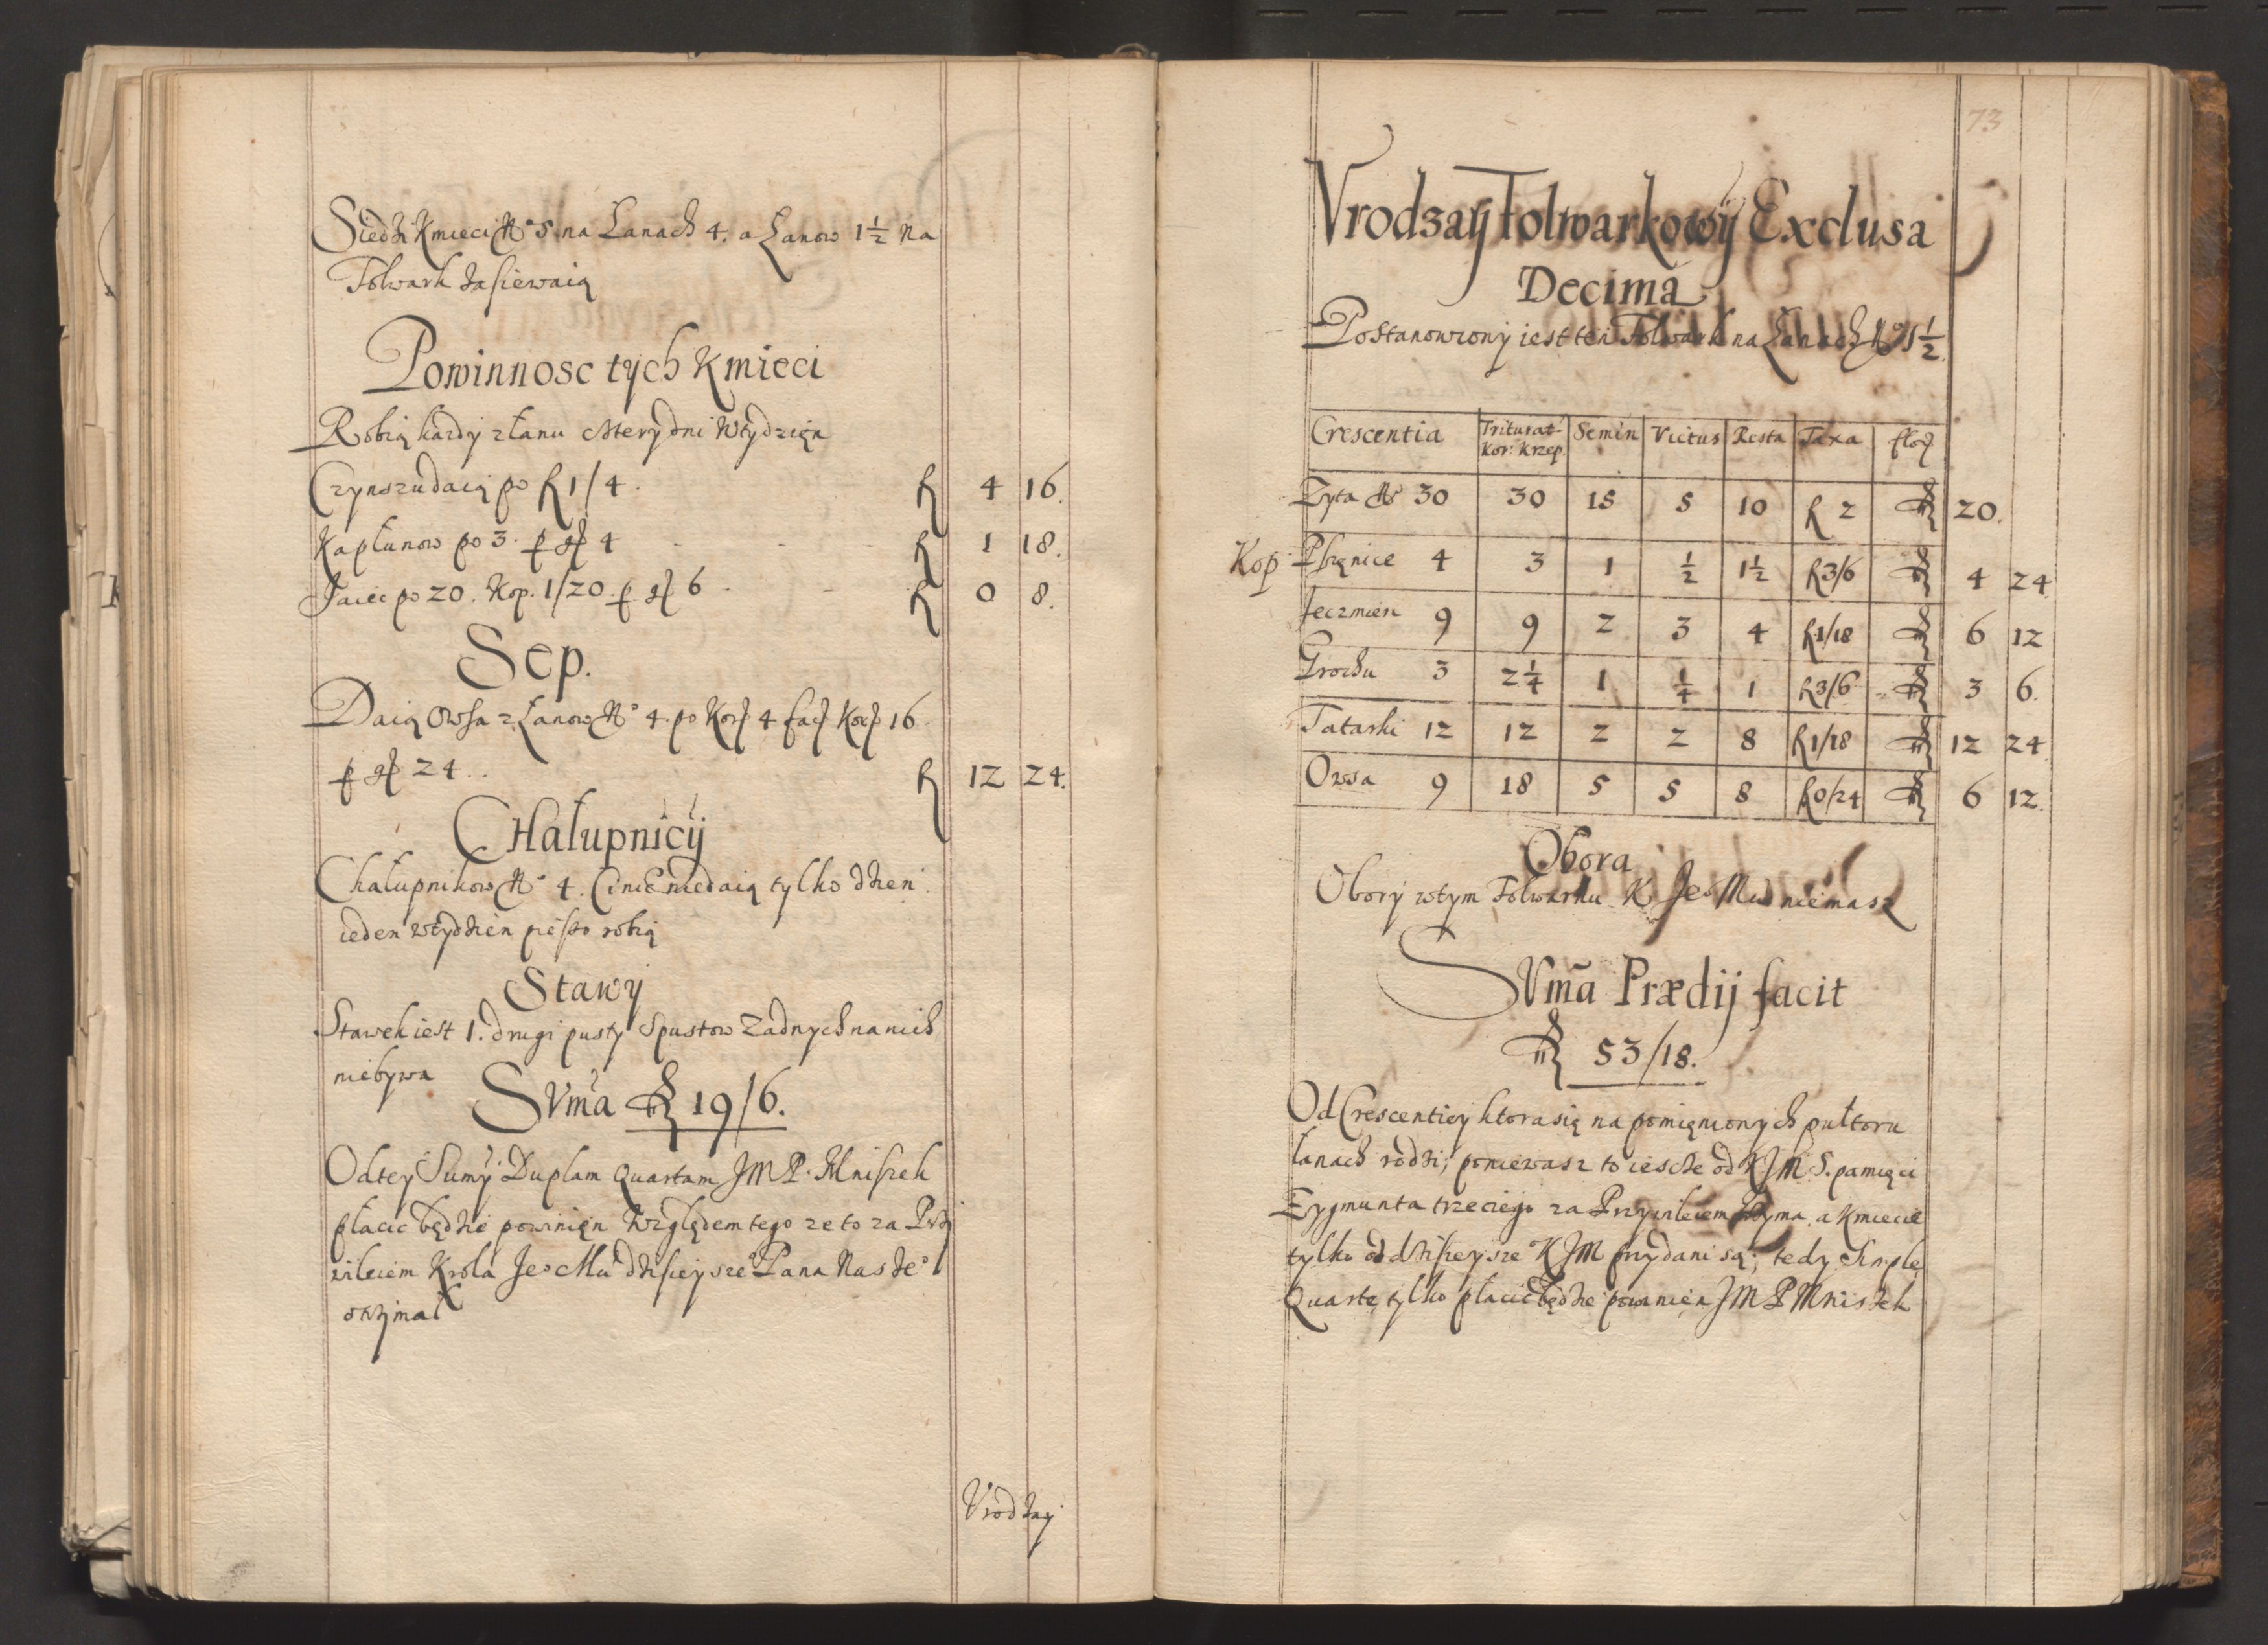 Siedzi Kmieci No 5. na Łanach 4. a Łanow 1½ na
Folwark zasiewaią
Powinnosc tych Kmieci
Robią kazdy z łanu cztery dni w tydzien
Czynszu daią po fl 1/4. fl 4 16.
Kapłunow po 3. p gr 4 fl 1 18.
Jaiec po 20. Kop. 1/20. p gr 6 fl 0 8.
Sep.
Daią Owsa z Łanow No 4. po Kor 4 fac Kor 16
p gr 24. fl 12 24.
Chałupnicy
Chałupnikow No 4. Ci nic niedaią tylko dzien
ieden w tydzien pieszo robią
Stawy
Stawek iest 1. drugi pusty Spustow Zadnych na nich
niebywa
Sum̃a fl 19/6.
Od tey Sumy Duplam Quartam JMP. Mniszek
płacic będzie powinien względem tego ze to za Przy
wileiem Krola Jeo Mci dzisieyszeo Pana Naszeo
otrzymał
Vrodzay
73
Vrodzay Folwarkowy Exclusa
Decima
Postanowiony iest ten Folwark na Łanach No 1½.
Crescentia Triturat Kor: Krzep. Semin Victus Resta Taxa flor
Zyta No 30 30 15 5 10 fl 2 fl 20.
Kop Pszenice 4 3 1 ½ 1½ fl 3/6 fl 4 24
Jeczmien 9 9 2 3 4 fl 1/18 fl 6 12
Grochu 3 2¼ 1 ¼ 1 fl 3/6 fl 3 6.
Tatarki 12 12 2 2 8 fl 1/18 fl 12 24
Owsa 9 18 5 5 8 fl 0/24 fl 6 12.
Obora
Obory w tym Folwarku K Jeo Mci niemasz
Sum̃a Prædij facit
fl 53/18.
Od Crescentiey ktora się na pomienionych pułtoru
łanach rodzi, poniewasz to iescze od KJM. S. pamięci
Zygmunta trzeciego za Przywileiem trzyma, a Kmiecie
tylko od dzisieyszeo KJM przydani są; tedy Simplę
Quartę tylko płacic będzie powinien JMP Mniszek